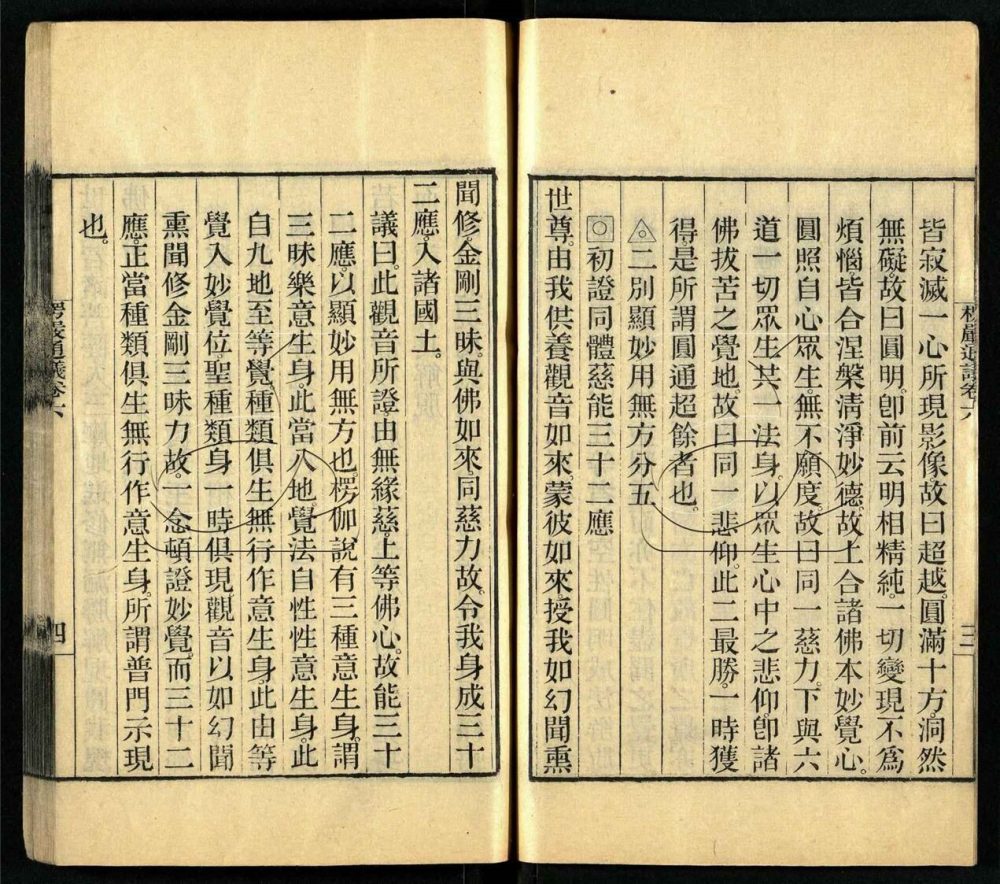 皆寂滅一心所現影像故曰超越。圓滿十方。洞然
無礙。故曰圓明。卽前云明相精純。一切變現不爲
煩惱。皆合涅槃淸淨妙德。故上合諸佛本妙覺心。
圓照自心眾生。無不願度。故曰同一慈力。下與六
道一切眾生共一法身。以眾生心中之悲仰。卽諸
佛拔苦之覺地。故曰同一悲仰。此二最勝。一時獲
得。是所謂圓通超餘者也。
二別顯妙用無方分五
初證同體慈能三十二應
世尊。由我供養觀音如來。蒙彼如來授我如幻聞熏
楞嚴通議卷六
三
聞修金剛三昧。與佛如來。同慈力故。令我身成三十
二應。入諸國土。
議曰。此觀音所證。由無緣慈。上等佛心。故能三十
二應。以顯妙用無方也。楞伽說有三種意生身。謂
三昧樂意生身。此當八地覺法自性性意生身。此
自九地至等覺。種類俱生無行作意生身。此由等
覺入妙覺位。聖種類身一時俱現。觀音以如幻聞
熏聞修金剛三昧力故。一念頓證妙覺。而三十二
應。正當種類俱生無行作意生身。所謂普門示現
也。
楞嚴通議卷六
四